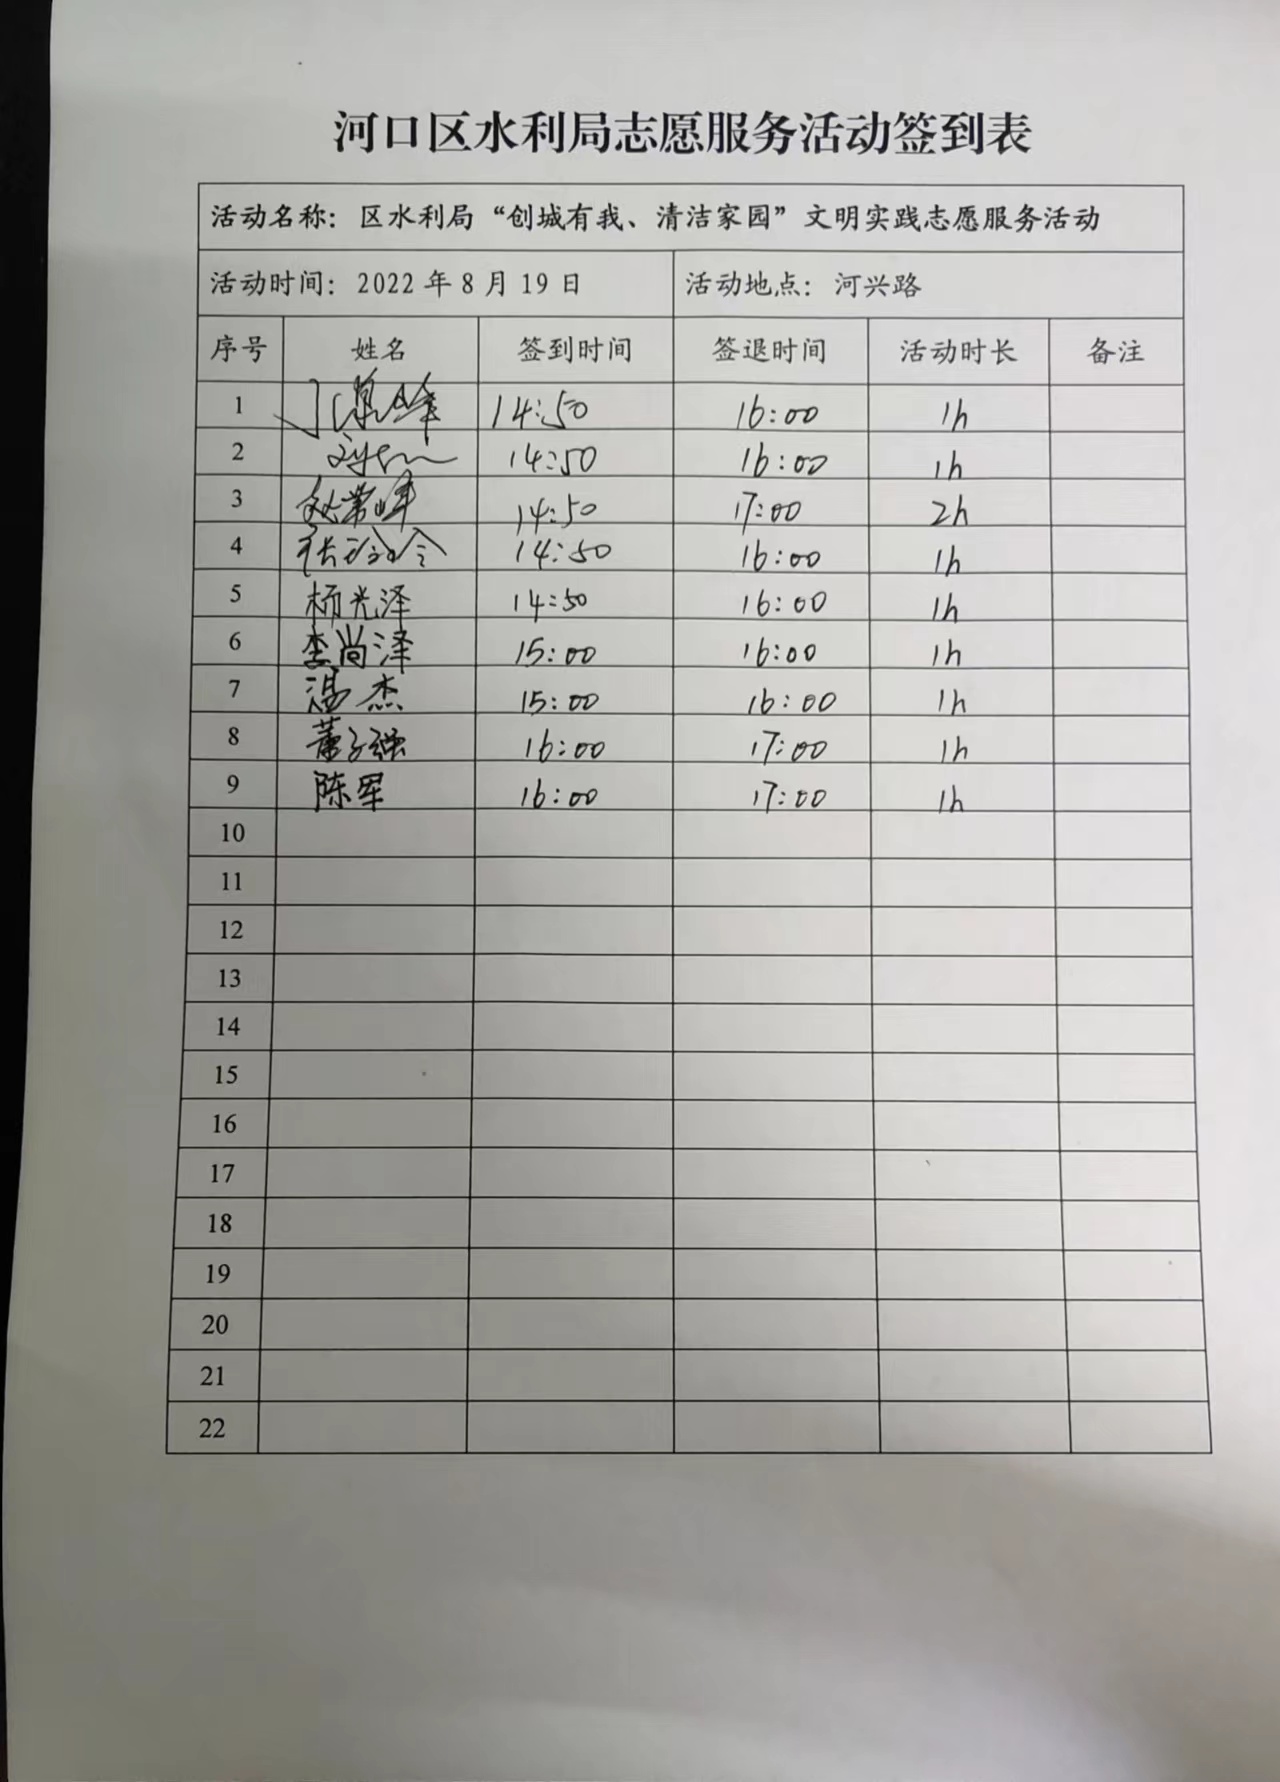 河口区水利局志愿服务活动签到表
活动名称：区水利局“创城有我、清洁家园”文明实践志愿服务活动
活动时间：2022年8月19日 活动地点：河兴路
序号 姓名 签到时间 签退时间 活动时长 备注
1 14:50 16:00 1h
2 14:50 16:00 1h
3 14:50 17:00 2h
4 14:50 16:00 1h
5 杨光泽 14:50 16:00 1h
6 李尚泽 15:00 16:00 1h
7 温杰 15:00 16:00 1h
8 16:00 17:00 1h
9 陈军 16:00 17:00 1h
10
11
12
13
14
15
16
17
18
19
20
21
22